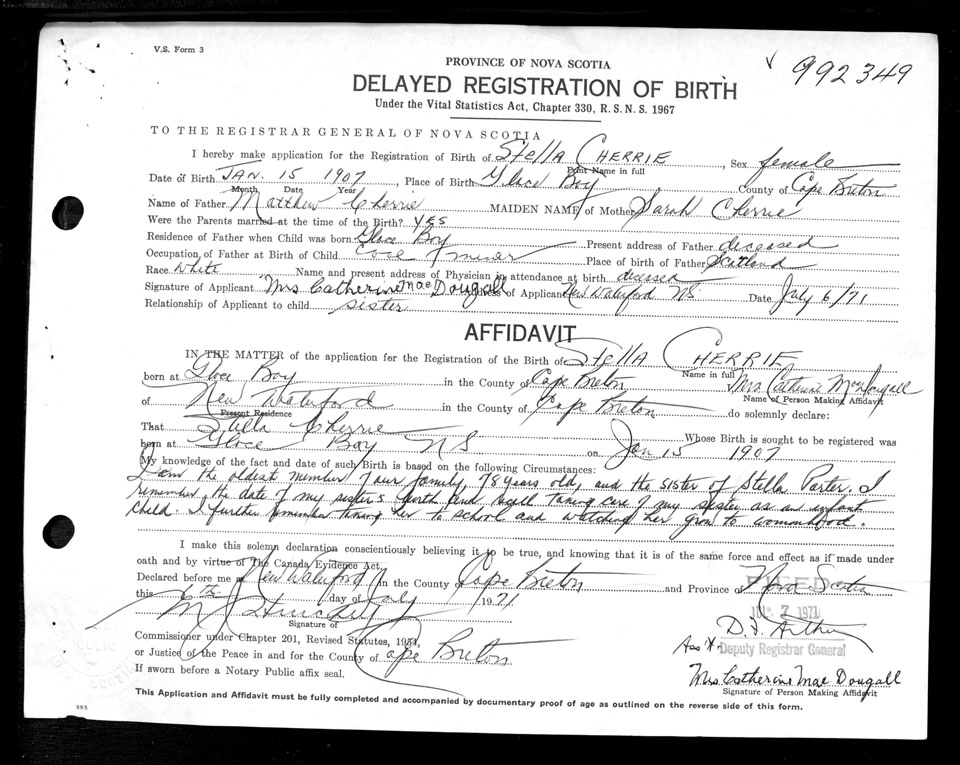 V.S. Form 3
992349
PROVINCE OF NOVA SCOTIA
DELAYED REGISTRATION OF BIRTH
Under the Vital Statistics Act, Chapter 330, R.S.N.S. 1967
TO THE REGISTRAR GENERAL OF NOVA SCOTIA
I hereby make application for the Registration of Birth of Stella CHERRIE, Sex female
Print Name in full
Date of Birth JAN. 15 1907, Place of Birth Glace Bay County of Cape Breton
Month Date Year
Name of Father Matthew Cherrie MAIDEN NAME of Mother Sarah Cherrie
Were the Parents married at the time of the Birth? YES
Residence of Father when Child was born Glace Bay Present address of Father deceased
Occupation of Father at Birth of Child miner Place of birth of Father Scotland
Race White Name and present address of Physician in attendance at birth deceased
Signature of Applicant Mrs Catherine MacDougall Address of Applicant New Waterford NS Date July 6/71
Relationship of Applicant to child sister
AFFIDAVIT
IN THE MATTER of the application for the Registration of the Birth of Stella CHERRIE
Name in full
born at Glace Bay in the County of Cape Breton Mrs Catherine MacDougall
Name of Person Making Affidavit
of New Waterford in the County of Cape Breton do solemnly declare:
Present Residence
That Stella Cherrie Whose Birth is sought to be registered was
born at Glace Bay NS on Jan 15 1907
My knowledge of the fact and date of such Birth is based on the following Circumstances:
I am the oldest member of our family, 78 years old, and the sister of Stella Porter, I
remember the date of my sister's birth and recall taking care of my sister as an infant
child. I further remember taking her to school and watching her grow to womanhood.
I make this solemn declaration conscientiously believing it to be true, and knowing that it is of the same force and effect as if made under
oath and by virtue of The Canada Evidence Act.
Declared before me at New Waterford in the County of Cape Breton and Province of Nova Scotia
FILED
this 6th day of July 1971
JUL 7 1971
Signature of
Commissioner under Chapter 201, Revised Statutes, 1954,
Deputy Registrar General
or Justice of the Peace in and for the County of Cape Breton
If sworn before a Notary Public affix seal.
Mrs Catherine MacDougall
Signature of Person Making Affidavit
This Application and Affidavit must be fully completed and accompanied by documentary proof of age as outlined on the reverse side of this form.
385